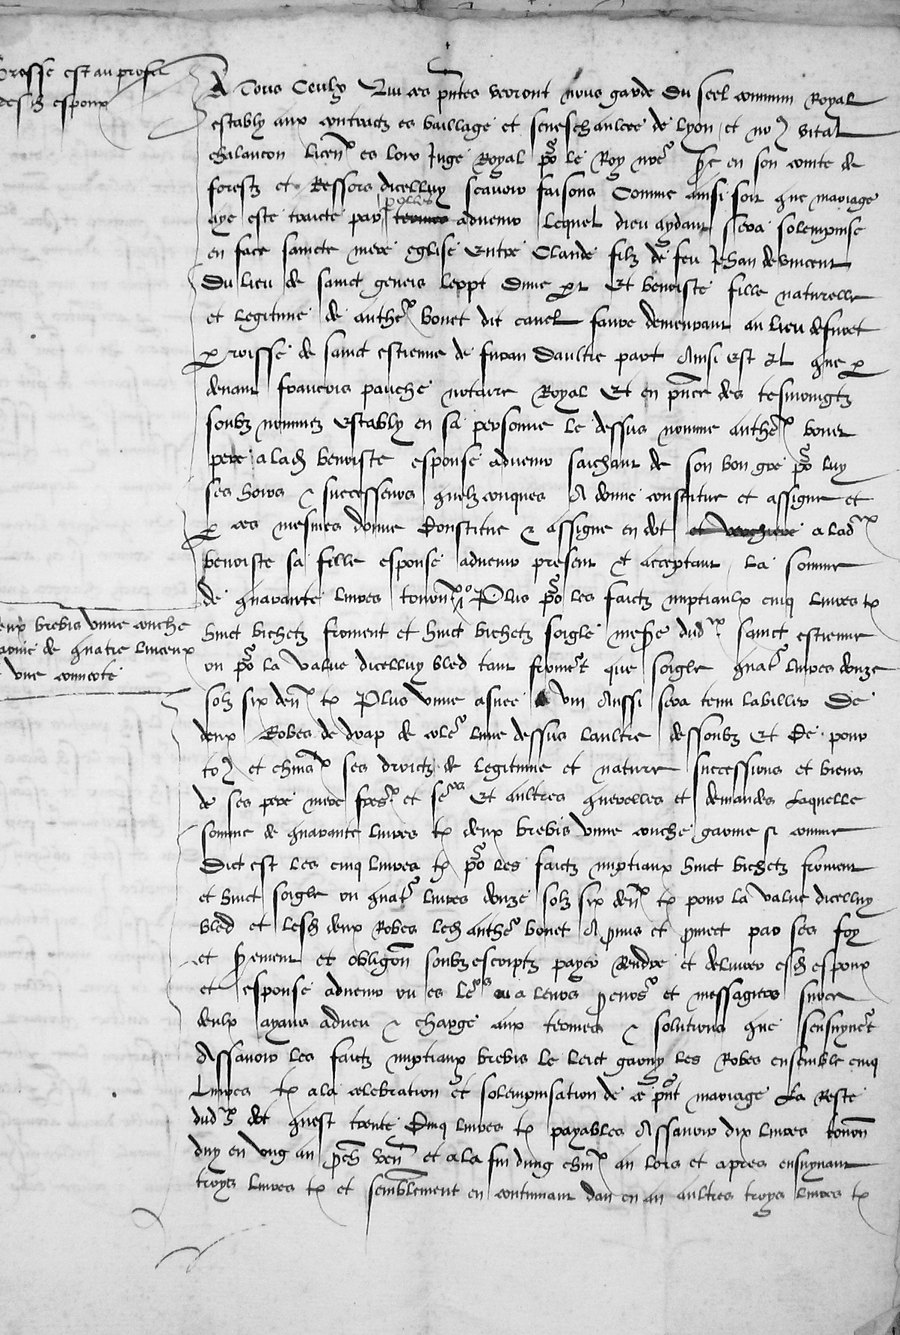 Grosse est au profit
desd espoux
A Tous Ceulx Qui ces pntes verront nous garde du scel commun Royal
estably aux contractz es bailliage et seneschaulcee de Lyon et no9 Vital
chalancon licen es loix Juge Royal po le Roy nre sr en son conte de
forestz et Ressors dicelluy scavoir faisons Comme ainsi soit que mariage
aye este traicte par parolles advenir Lequel dieu aydant sera solempnise
en face saincte mere eglise Entre Claude filz de feu Jehan de vincent
Du lieu de sainct geneis leppt dune pt Et benoiste fille naturelle
et legitime de anthe bonet dit canel faure demeurant au lieu de furet
proisse de sainct estienne de furan daultre part Ainsi est Et que p
devant francois panche notaire Royal Et en pnce des tesmoingtz
soubz nommez Estably en sa personne le dessus nomme anthe bonet
pere a lad benoiste espouse advenir saichant de son bon gre po luy
ses hoirs & successeurs quelzconques A donne constitue et assigne et
p ces mesmes donne Constitue & assigne en dot et verchiere a lad
benoiste sa fille espouse advenir present Et acceptant La somme
de quarante livres tourn Plus po les faictz nuptiaulx cinq livres tz
huict bichetz froment et huict bichetz soigle mesure dud sainct estienne
ou po la value dicelluy bled tant fromet que soigle quatre livres douze
solz six den tz Plus une asnee vin Aussi sera tenu labiller De
deux Robes de drap de colr lune dessus laultre dessoubz Et Ce pour
to9 et chms ses droictz de legitime et nature successions et biens
de ses pere mere freres et sers Et aultres querelles et demandes Laquelle
somme de quarante livres tz deux brebis une couche garnie si comme
Dict est les cinq livres tz po les faictz nuptiaux huict bichetz froment
et huict soigle ou quatre livres douze solz six den tz pour la value dicelluy
bled et lesd deux Robes led anthe bonet A pmis et pmect par ses foy
et srement et obligon soubzescriptz payer Rendre et delivrer esd espoux
et espouse advenir ou es lers ou a leurs pcureurs et messagiers sur ce
deulx ayans adveu & charge aux termes & solutions que sensuyvet
Assavoir les faictz nuptiaux brebis le lict garny les Robes ensemble cinq
Livres tz a la celebration et solempnisation de ce pnt mariage La Reste
dud dot quest trente Cinq livres tz payables Assavoir dix livres tourn
duy en ung an proch ven et a la fin dung chm an lors et apres ensuyvant
troys livres tz et semblement en continuant dan en an aultres troys livres tz
deux brebis une couche
garnie de quatre linceux
une couverte